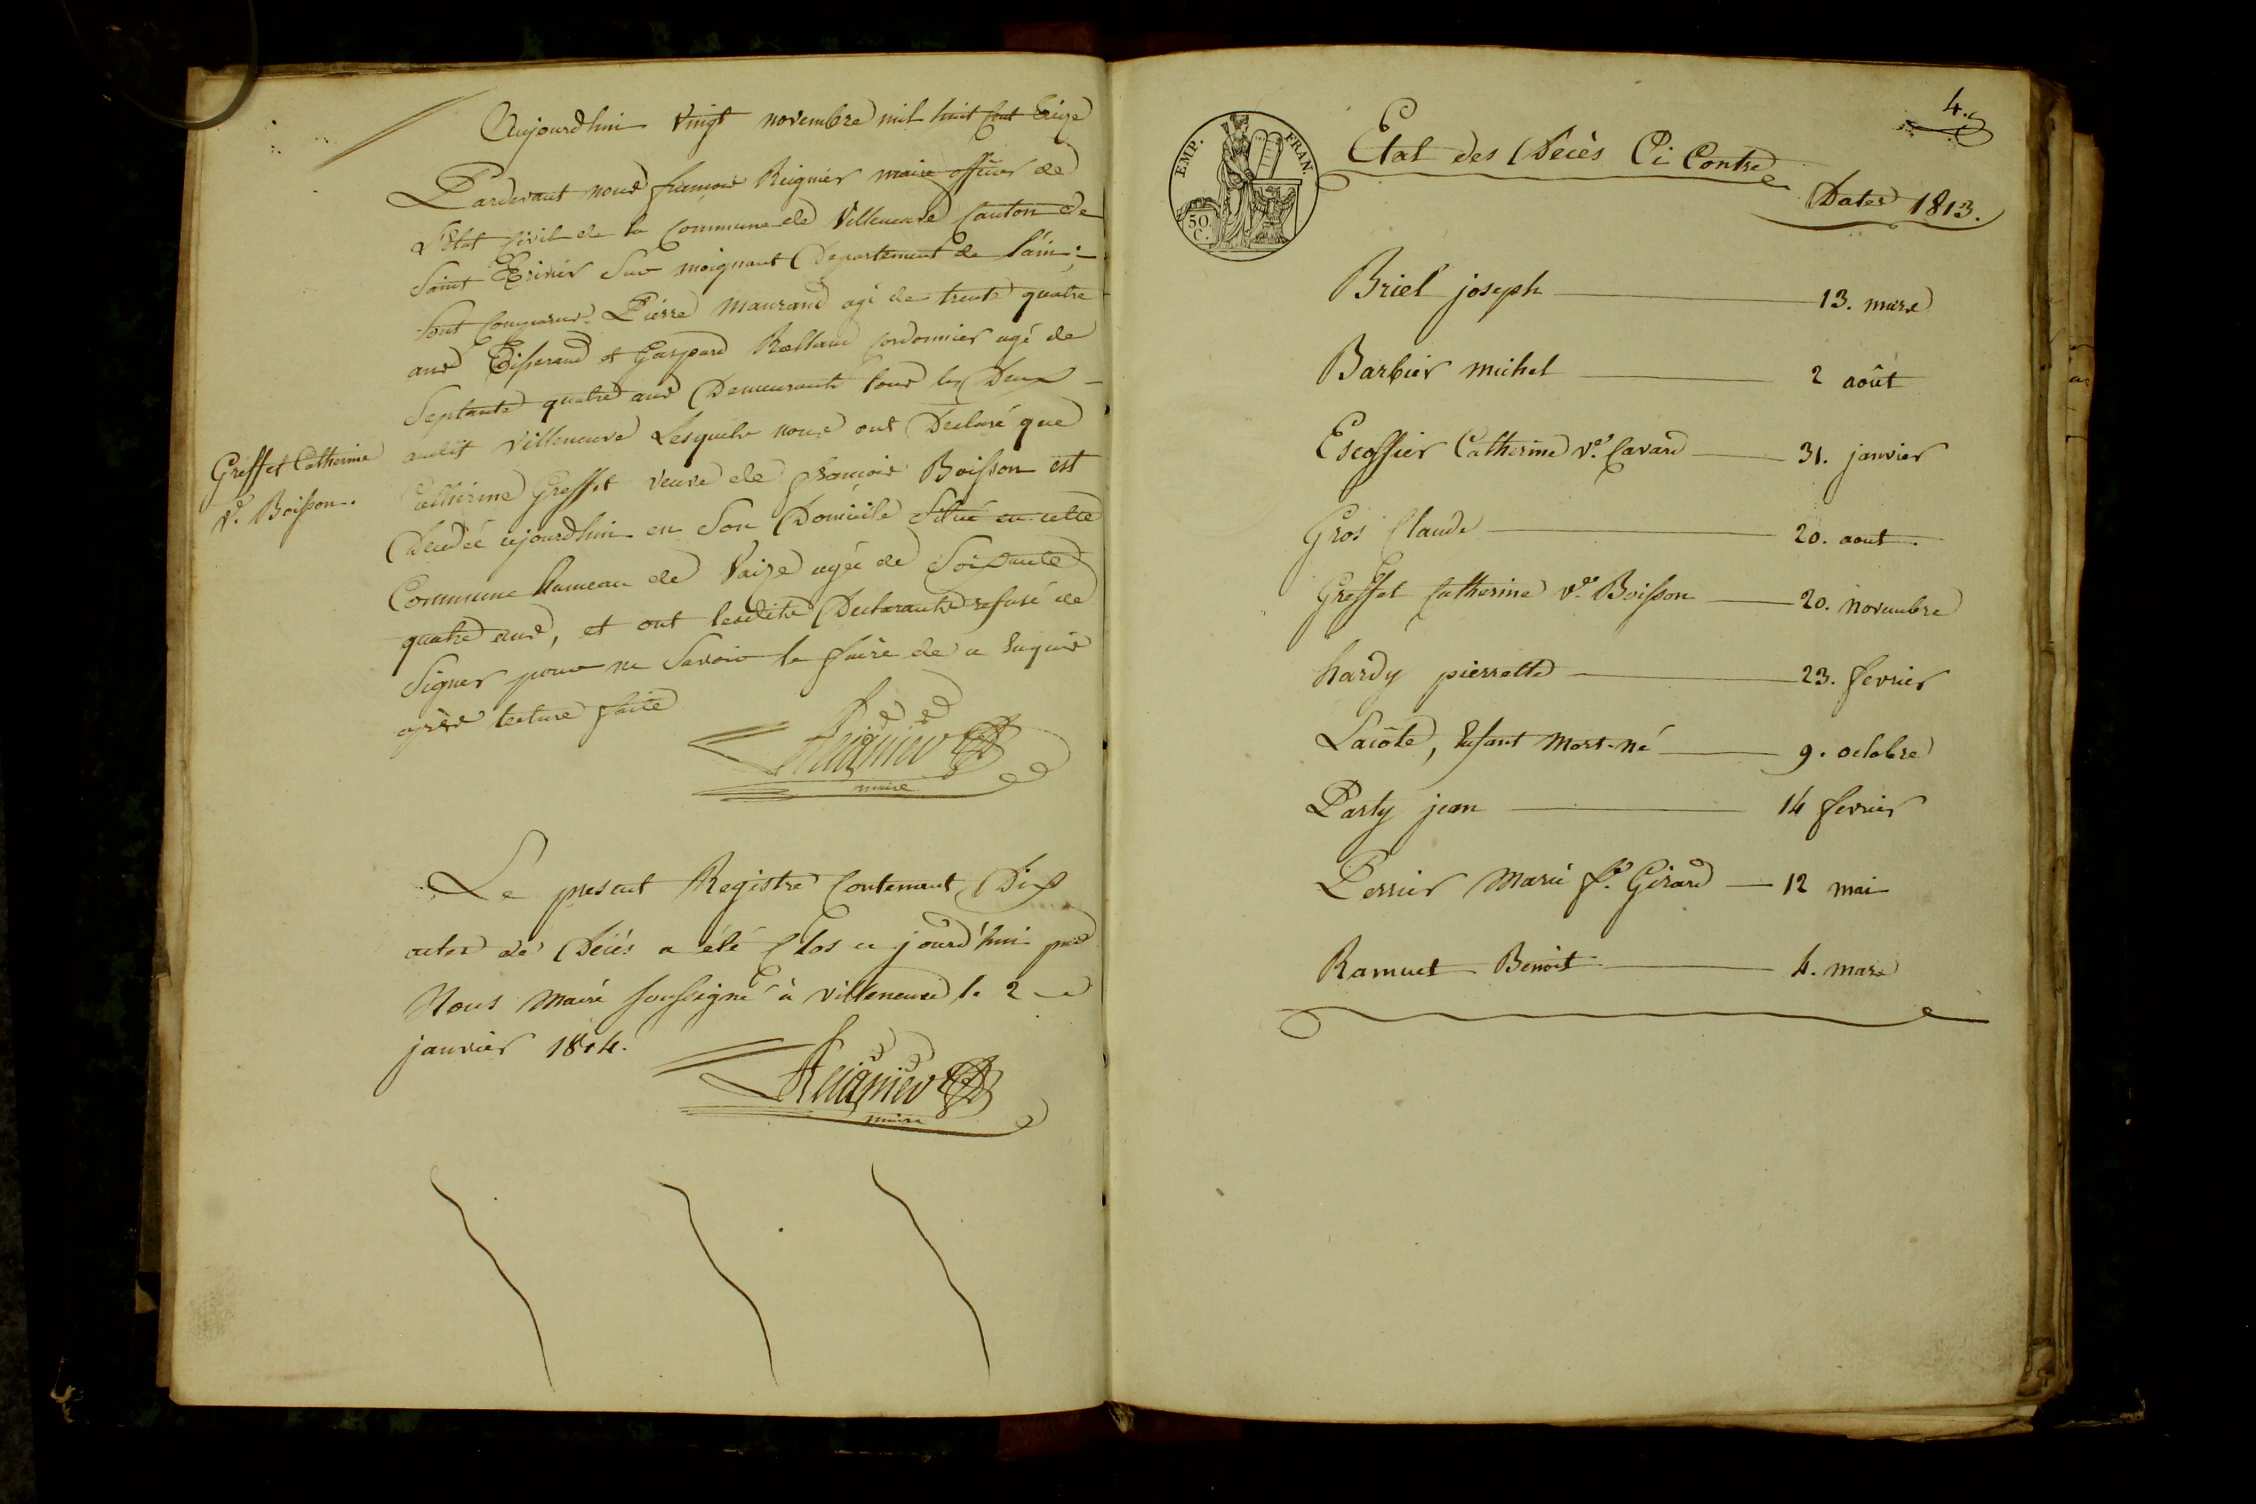 Aujourdhui vingt novembre mil huit cent treize
Pardevant nous françois Reignier maire officier de
L'Etat Civil de la Commune de Villeneuve Canton de
Saint Trivier Sur moignant Departement de l'ain ;
Sont Comparus Pierre Maurand agé de trente quatre
ans Tisserand et Gaspard Rolland Cordonnier agé de
Septante quatre ans Demeurants tous les Deux
audit Villeneuve Lesquels nous ont Declaré que
Greffet Catherine
Ve. Boisson.
Catherine Greffet veuve de francois Boisson est
Decedée ajourdhui en Son Domicile Situé en cette
Commune hameau de Vaize agée de Soixante
quatre ans, et ont lesdits Declarants refusé de
Signer pour ne Savoir le faire de ce enquis
après lecture faite
Reignier
maire
Le present Registre Contenant Dix
actes de Décés a été Clos ce jourd'hui par
Nous Maire soussigné à villeneuve le 2
janvier 1814.
Reignier
maire
4.
EMP. FRAN.
50 C.
Etat des Décès Ci Contre
Dates 1813.
Briel joseph 13. mars
Barbier michel 2 août
Escoffier Catherine Ve. Cavard 31. janvier
Gros Claude 20. aout
Greffet Catherine Ve. Boisson 20. novembre
hardy pierrette 23. fevrier
Lacôte, Enfant Mort-né 9. octobre
Party jean 14 fevrier
Perrier Marie fe. Girard 12 mai
Ramuet Benoit 4. mars